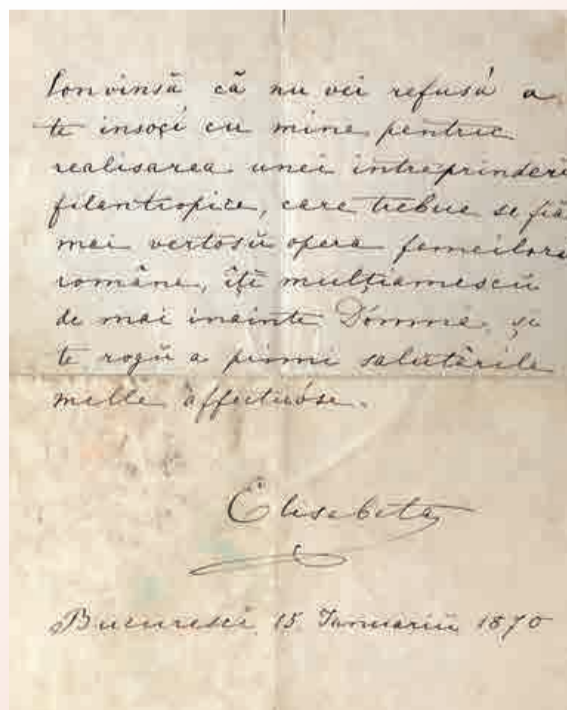 Convinsă că nu vei refusá a
te insoçí cu mine pentru
realisarea unei intreprinderi
filantropice, care trebue se fiă
mai vertosŭ opera femeilorŭ
române, îți mulțiamescŭ
de mai inainte Dómnă, și
te rogŭ a primi salutările
melle affectuóse.
Elisabeta
Bucuresci 15 Ianuariŭ 1870